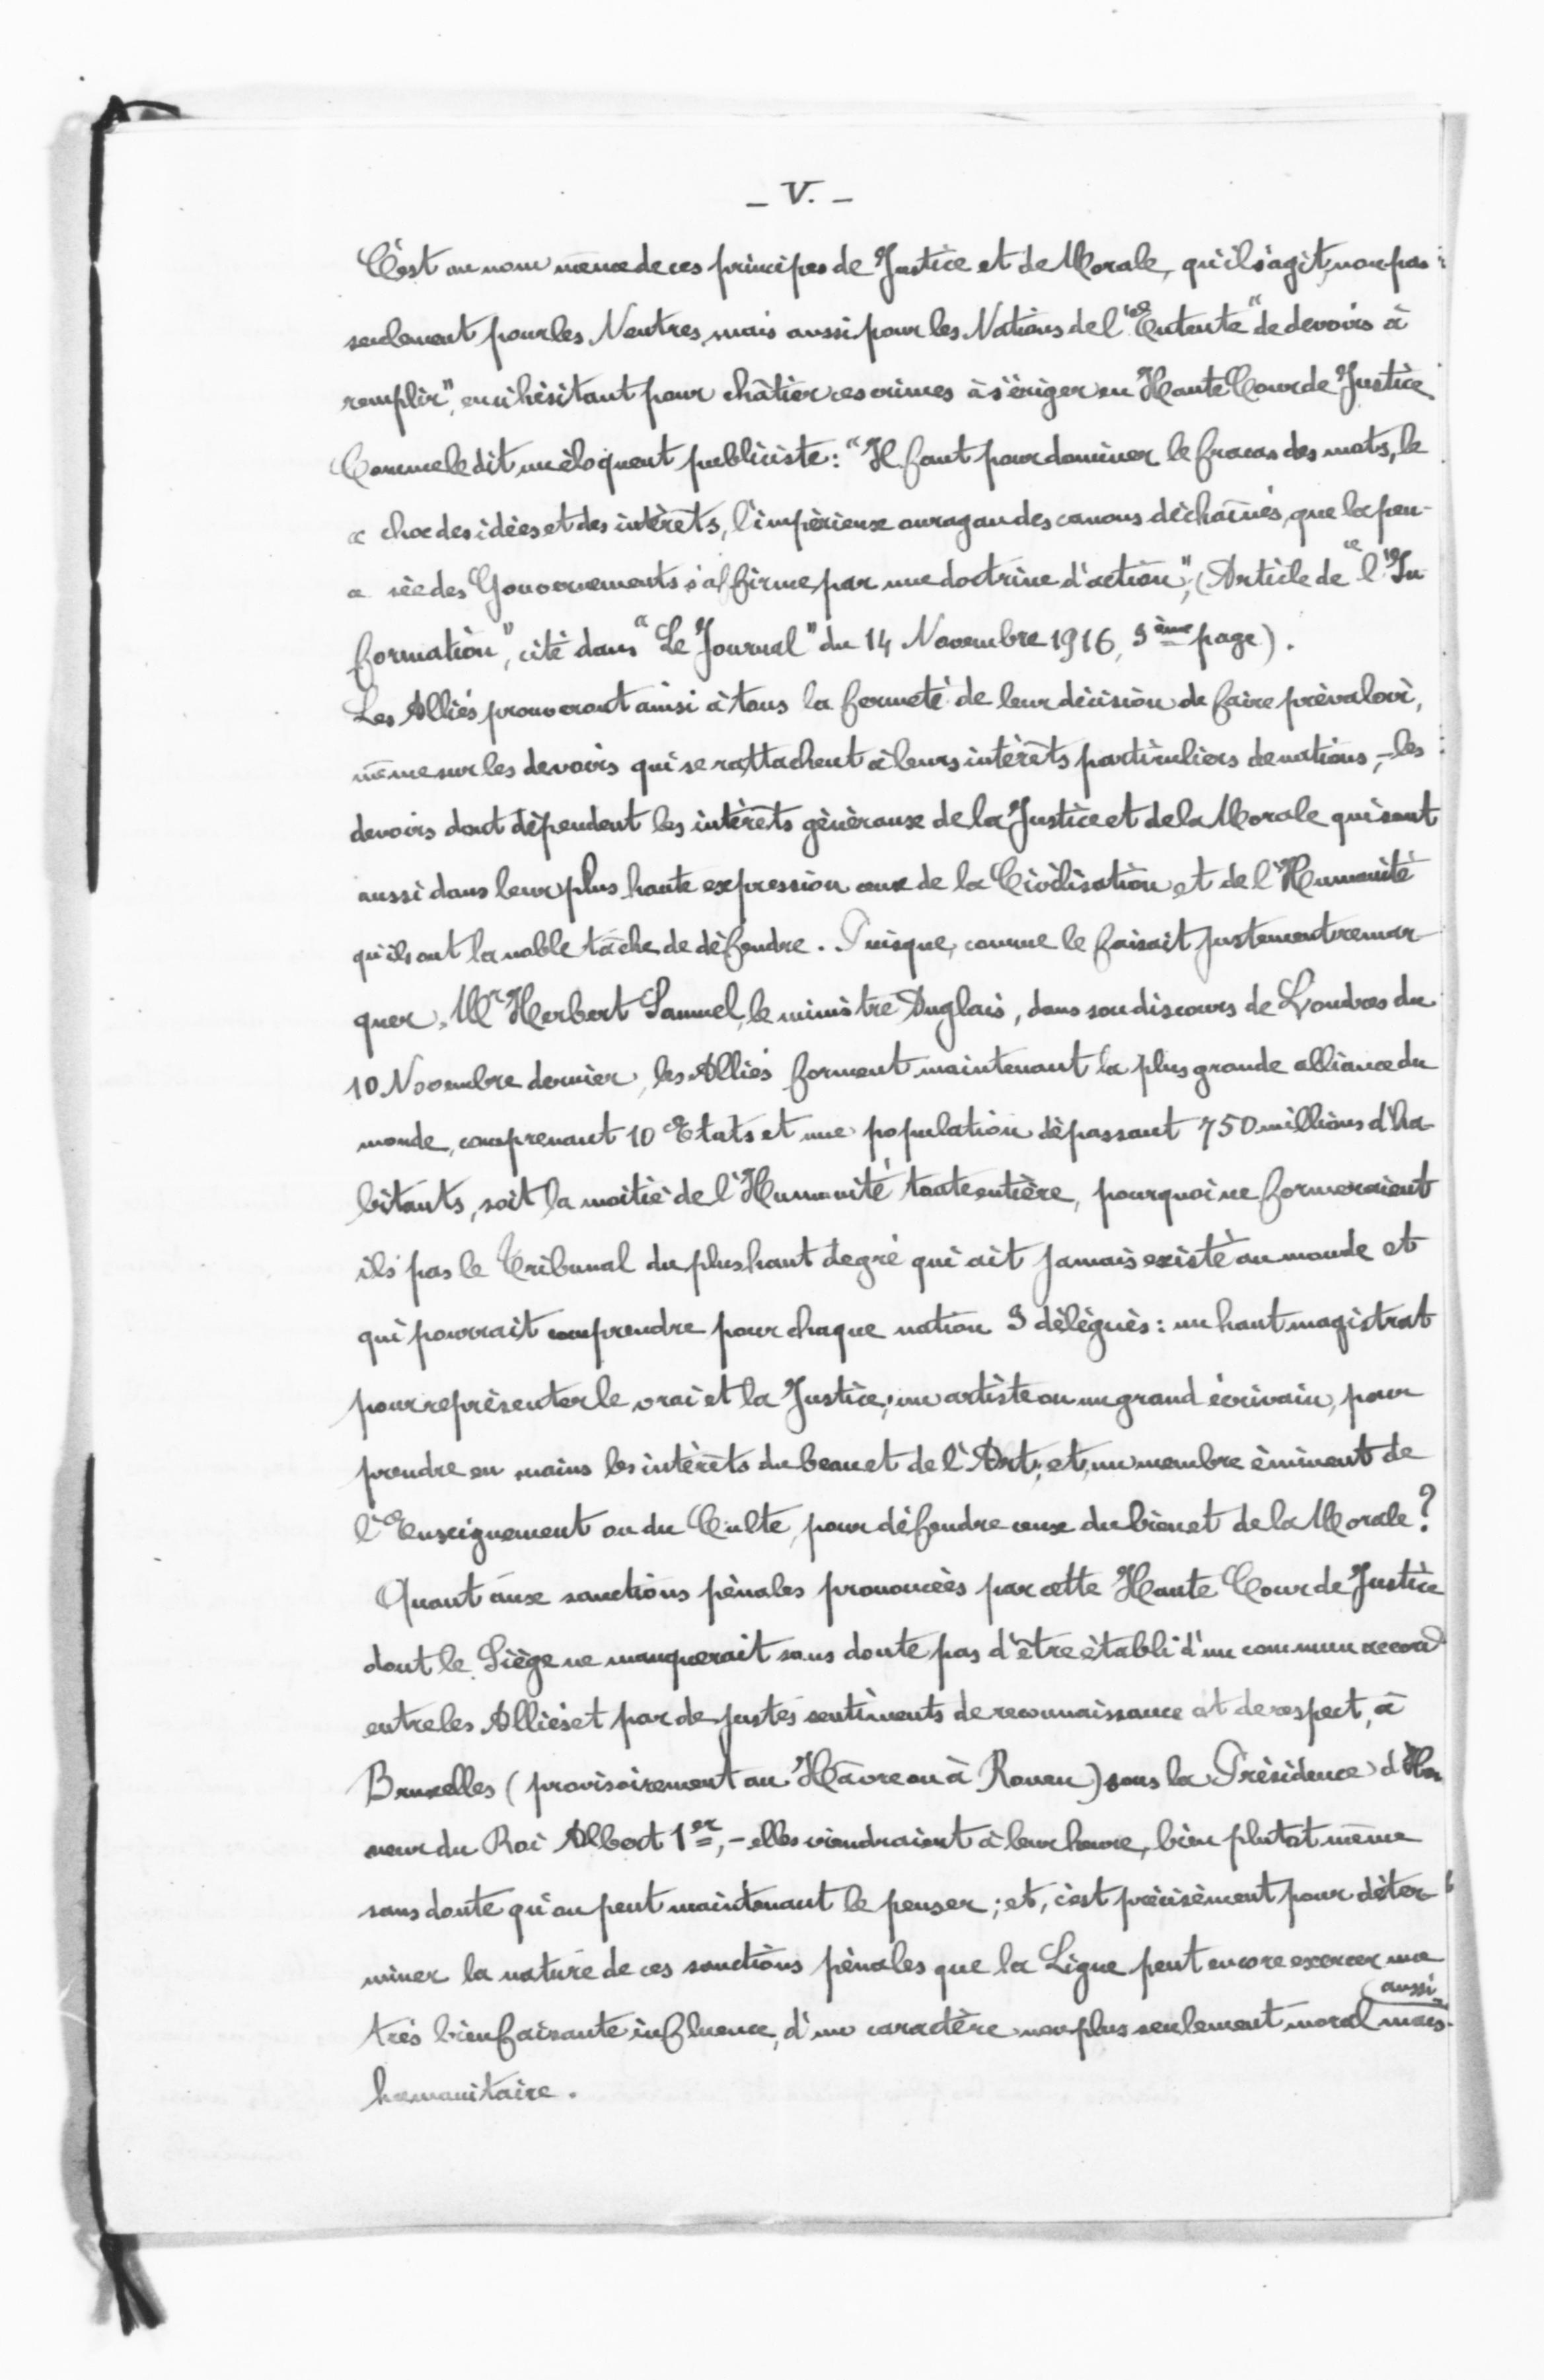 _ V. _
C'est au nom même de ces principes de Justice et de Morale, qu'il s'agit, non pas
seulement pour les Neutres, mais aussi pour les Nations de l'"Entente" "de devoirs à
remplir", en n'hésitant pour châtier ces crimes à s'ériger en Haute Cour de Justice
Comme le dit un éloquent publiciste: "Il faut pour dominer le fracas des mots, le
« choc des idées et des intérêts, l'impérieux ouragan des canons déchaînés, que la pen-
« sée des Gouvernements s'affirme par une doctrine d'action", (Article de "l'In-
formation", cité dans "Le Journal" du 14 Novembre 1916, 3ème page).
Les Alliés prouveront ainsi à tous la fermeté de leur décision de faire prévaloir,
même sur les devoirs qui se rattachent à leurs intérêts particuliers de nations, - les
devoirs dont dépendent les intérêts généraux de la Justice et de la Morale qui sont
aussi dans leur plus haute expression ceux de la Civilisation et de l'Humanité
qu'ils ont la noble tâche de défendre. Puisque, comme le faisait justement remar-
quer, Mr Herbert Samuel, le ministre Anglais, dans son discours de Londres du
10 Novembre dernier, les Alliés forment maintenant la plus grande alliance du
monde, comprenant 10 Etats et une population dépassant 750 millions d'ha-
bitants, soit la moitié de l'Humanité toute entière, pourquoi ne formeraient
ils pas le Tribunal du plus haut degré qui ait jamais existé au monde et
qui pourrait comprendre pour chaque nation 3 délégués: un haut magistrat
pour représenter le vrai et la Justice; un artiste ou un grand écrivain, pour
prendre en mains les intérêts du beau et de l'Art; et, un membre éminent de
l'Enseignement ou du Culte, pour défendre ceux du bien et de la Morale?
Quant aux sanctions pénales prononcées par cette Haute Cour de Justice
dont le Siège ne manquerait sans doute pas d'être établi d'un commun accord
entre les Alliés et par de justes sentiments de reconnaissance et de respect, à
Bruxelles (provisoirement au Hâvre ou à Rouen) sous la Présidence d'Hon
neur du Roi Albert 1er, - elles viendraient à leur heure, bien plutot même
sans doute qu'on peut maintenant le penser; et, c'est précisément pour déter-
miner la nature de ces sanctions pénales que la Ligue peut encore exercer une
très bienfaisante influence, d'un caractère non plus seulement moral mais aussi
humanitaire.